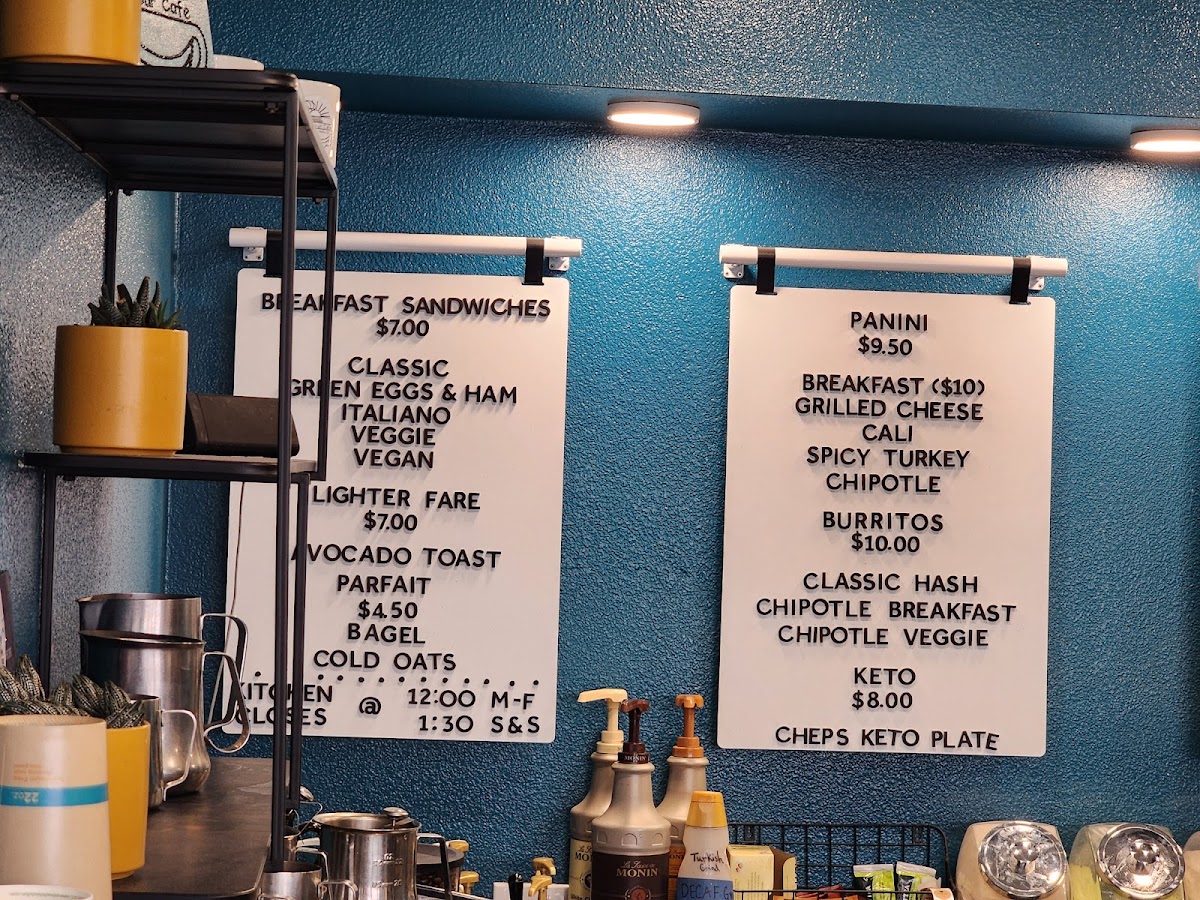 Cafe
BREAKFAST SANDWICHES
$7.00
CLASSIC
GREEN EGGS & HAM
ITALIANO
VEGGIE
VEGAN
LIGHTER FARE
$7.00
AVOCADO TOAST
PARFAIT
$4.50
BAGEL
COLD OATS
KITCHEN CLOSES @ 12:00 M-F
1:30 S&S
PANINI
$9.50
BREAKFAST ($10)
GRILLED CHEESE
CALI
SPICY TURKEY
CHIPOTLE
BURRITOS
$10.00
CLASSIC HASH
CHIPOTLE BREAKFAST
CHIPOTLE VEGGIE
KETO
$8.00
CHEPS KETO PLATE
22oz
MONIN
MONIN
Turkish
DECAF